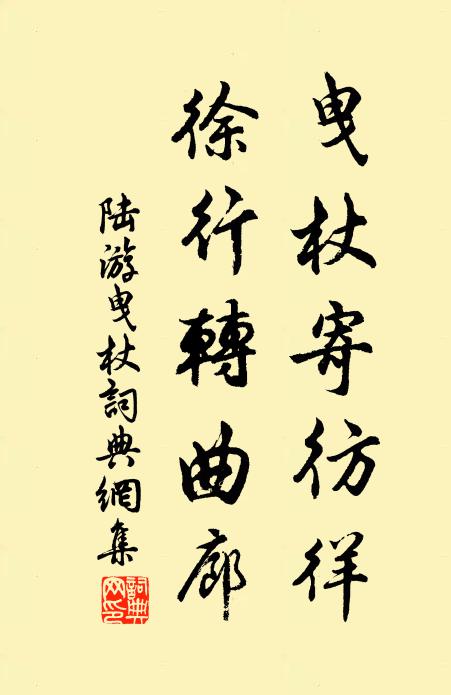 曳杖寄彷徉
徐行轉曲廊
陆游曳杖詞典網集
詞典網印